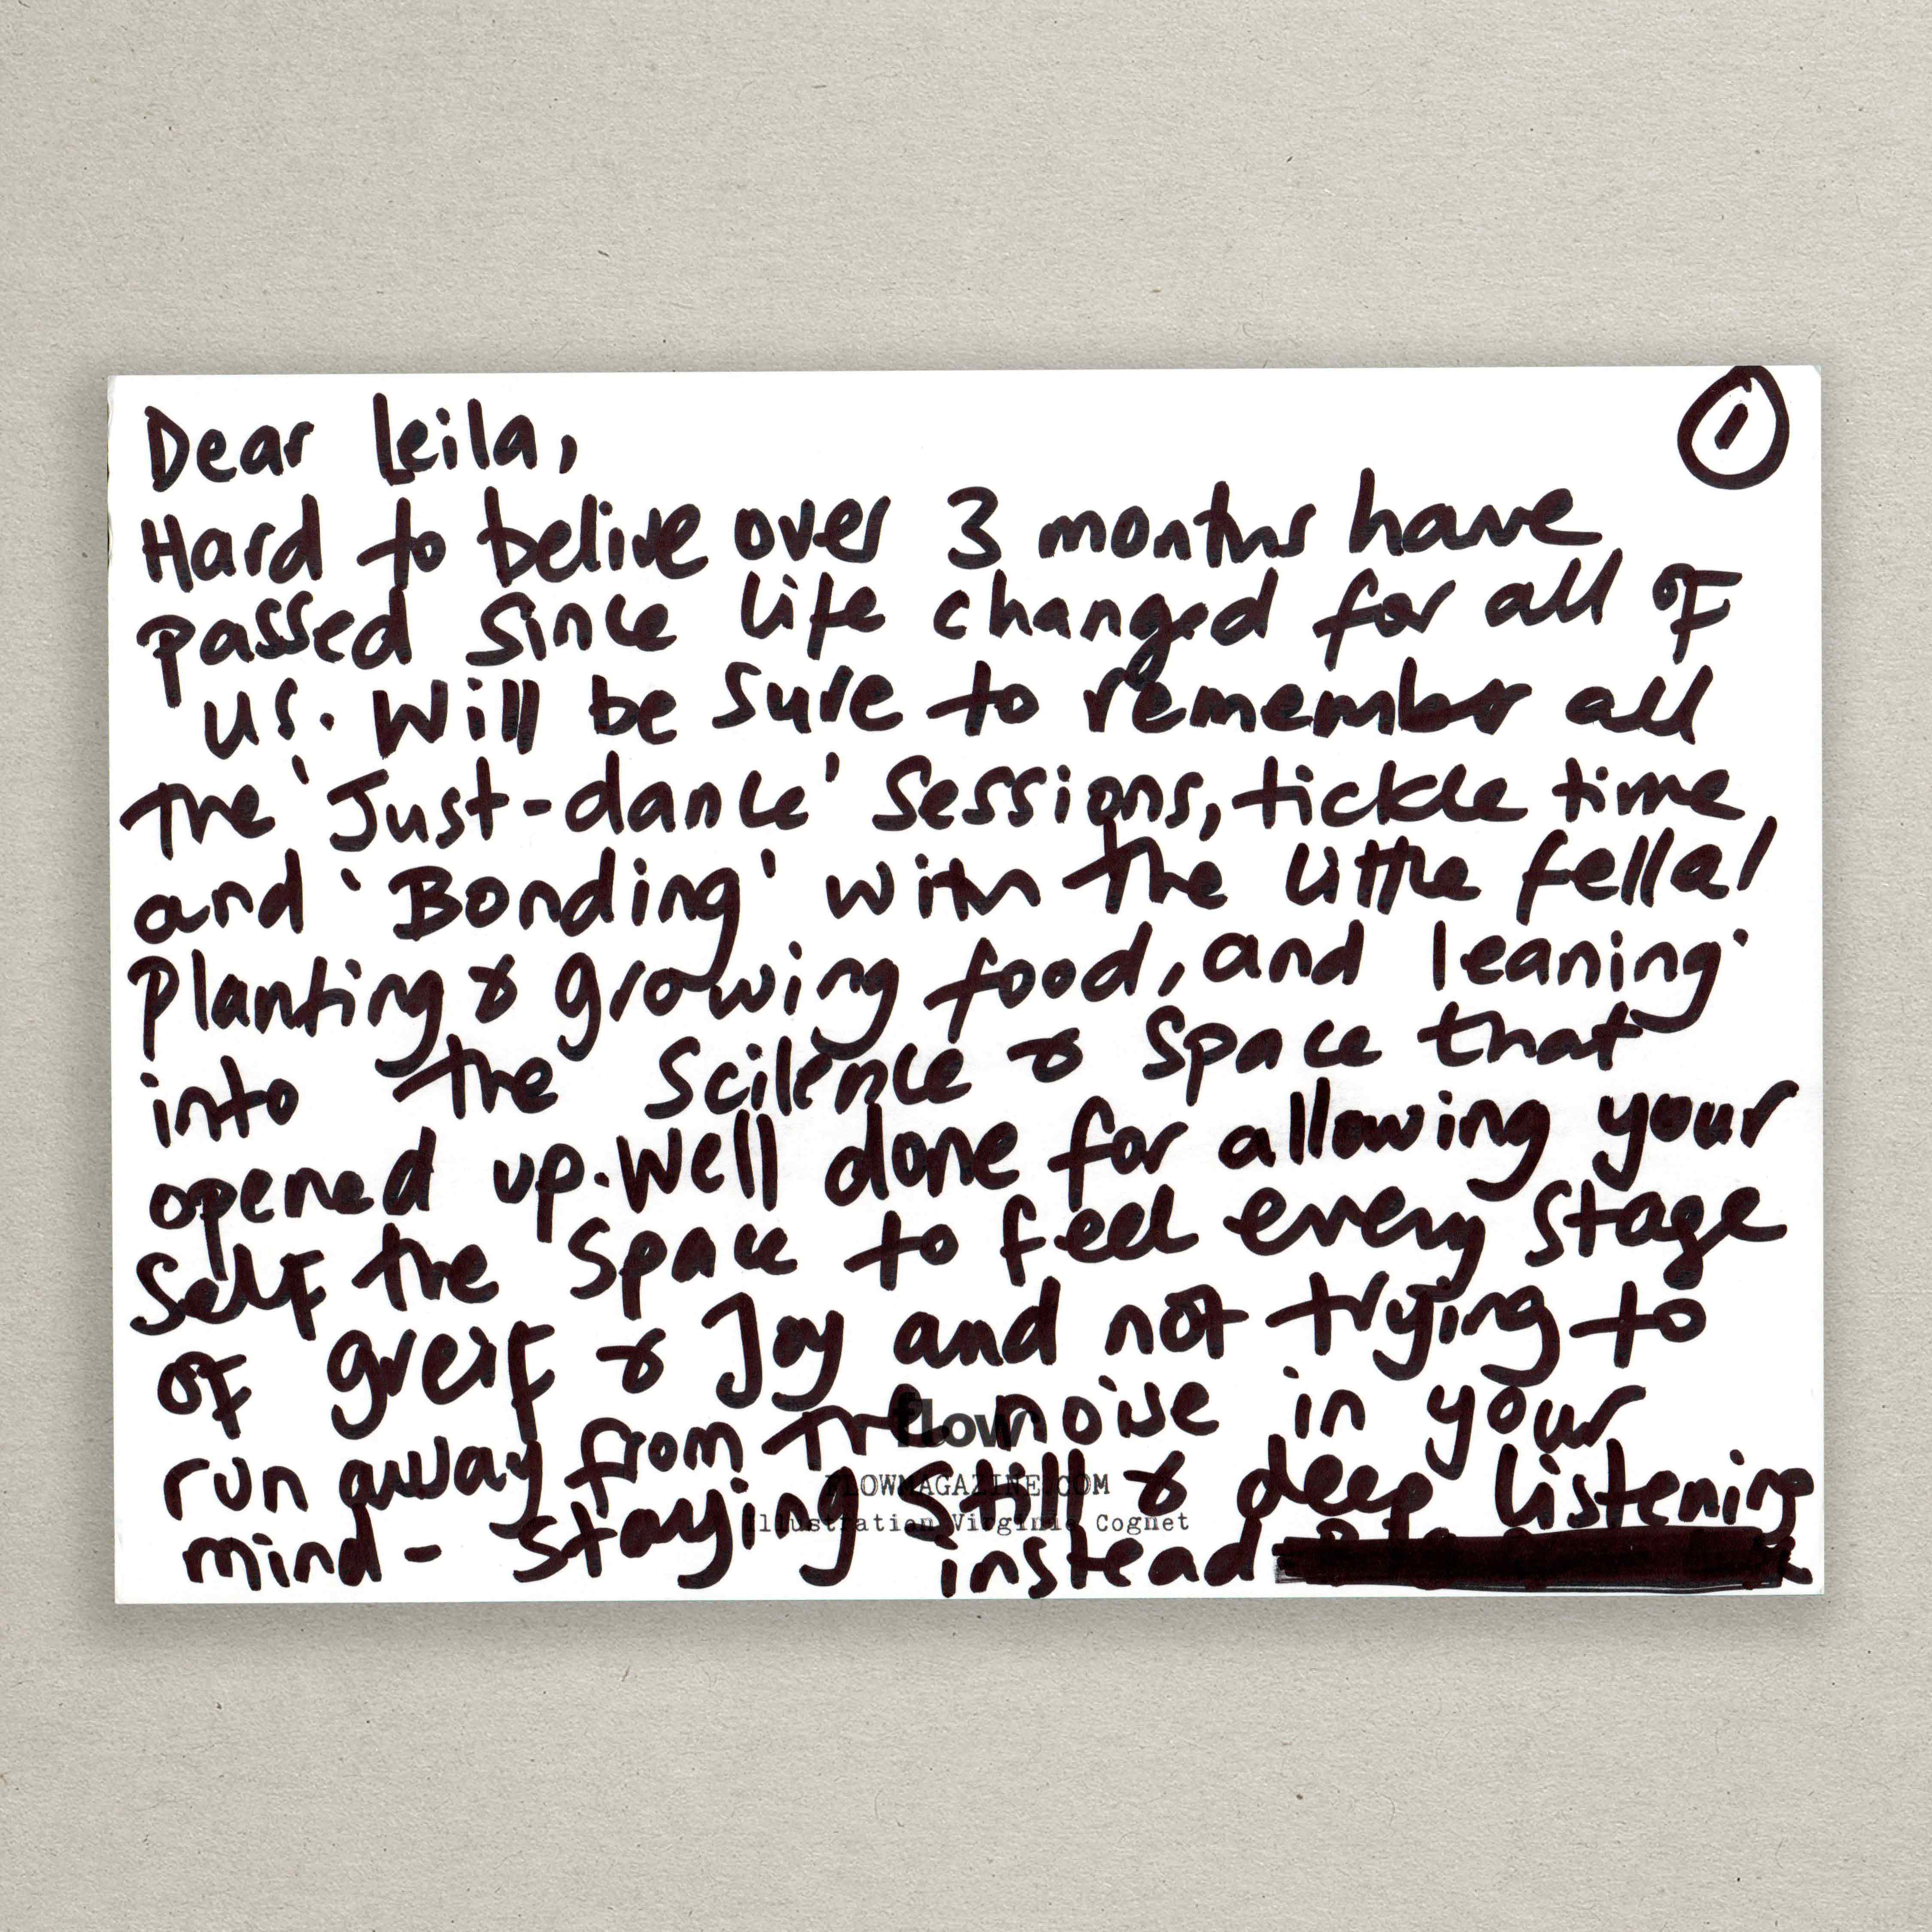 ①
Dear Leila,
Hard to belive over 3 months have
passed since life changed for all of
us. Will be sure to remember all
the 'Just-dance' sessions, tickle time
and 'Bonding' with the little fella!
Planting & growing food, and leaning
into the scilence & space that
opened up. Well done for allowing your
self the space to feel every stage
of greif & Joy and not trying to
run away from the noise in your
mind - staying still & deep listening
instead
flow
FLOWMAGAZINE.COM
Illustration Virginie Cognet